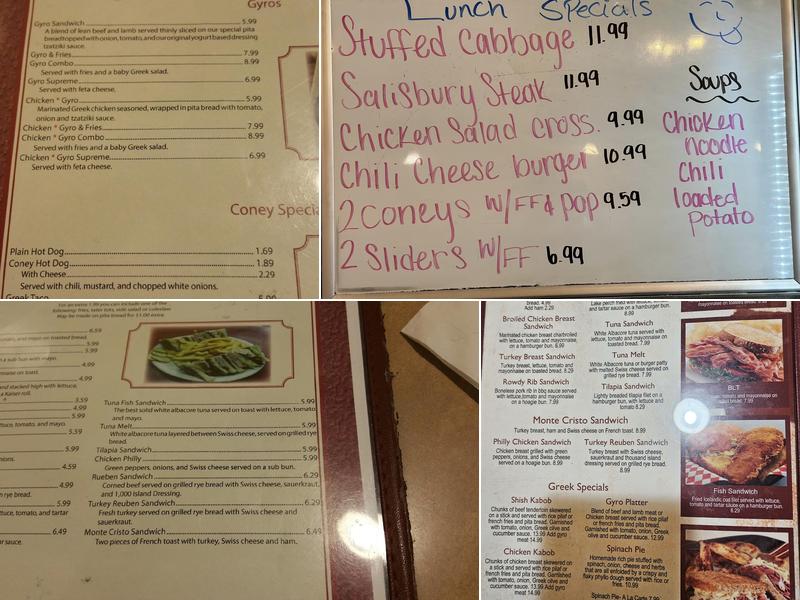 Gyros
Gyro Sandwich 5.99
A blend of lean beef and lamb served thinly sliced on our special pita
bread topped with onion, tomato, and our original yogurt based dressing,
tzatziki sauce.
Gyro & Fries 7.99
Gyro Combo 8.99
Served with fries and a baby Greek salad.
Gyro Supreme 6.99
Served with feta cheese.
Chicken * Gyro 5.99
Marinated Greek chicken seasoned, wrapped in pita bread with tomato,
onion and tzatziki sauce.
Chicken * Gyro & Fries 7.99
Chicken * Gyro Combo 8.99
Served with fries and a baby Greek salad.
Chicken * Gyro Supreme 6.99
Served with feta cheese.
Coney Specia
Plain Hot Dog 1.69
Coney Hot Dog 1.89
With Cheese 2.29
Served with chili, mustard, and chopped white onions.
Greek Taco
Lunch Specials
Stuffed Cabbage 11.99
Salisbury Steak 11.99
Chicken Salad Cross. 9.99
Chili Cheese burger 10.99
2 coneys w/FF & pop 9.59
2 Sliders w/FF 6.99
Soups
Chicken
noodle
Chili
loaded
potato
For an extra 1.99 you can include one of the
following: fries, tater tots, side salad or coleslaw
May be made on pita bread for $1.00 extra
6.59
5.99
5.99
4.99
4.99
and stacked high with lettuce,
a Kaiser roll.
3.59
4.99
5.99
5.59
4.59
n rye bread.
5.99
ttuce, tomato, and tartar
6.49
ar sauce.
Tuna Fish Sandwich 5.99
The best solid white albacore tuna served on toast with lettuce, tomato
and mayo.
Tuna Melt 5.99
White albacore tuna layered between Swiss cheese, served on grilled rye
bread.
Tilapia Sandwich 5.99
Chicken Philly 5.99
Green peppers, onions, and Swiss cheese served on a sub bun.
Rueben Sandwich 6.29
Corned beef served on grilled rye bread with Swiss cheese, sauerkraut,
and 1,000 Island Dressing.
Turkey Reuben Sandwich 6.29
Fresh turkey served on grilled rye bread with Swiss cheese and
sauerkraut.
Monte Cristo Sandwich 6.49
Two pieces of French toast with turkey, Swiss cheese, and ham.
bread. 4.99
Add ham 2.29
Broiled Chicken Breast
Sandwich
Marinated chicken breast charbroiled
with lettuce, tomato and mayonnaise,
on a hamburger bun. 8.99
Turkey Breast Sandwich
Turkey breast, lettuce, tomato and
mayonnaise on toasted bread. 8.29
Rowdy Rib Sandwich
Boneless pork rib in bbq sauce served
with lettuce, tomato and mayonnaise
on a hoagie bun. 7.99
and tartar sauce on a hamburger
bun. 8.99
Tuna Sandwich
White Albacore tuna served with
lettuce, tomato and mayonnaise on
toasted bread. 7.99
Tuna Melt
White Albacore tuna or turkey patty
with melted Swiss cheese served on
grilled rye bread. 7.99
Tilapia Sandwich
Lightly breaded tilapia filet on a
hamburger bun, with lettuce and
tomato 8.29
Monte Cristo Sandwich
Turkey breast, ham and Swiss cheese on French toast. 8.99
Philly Chicken Sandwich
Chicken breast grilled with green
peppers, onions, and Swiss cheese
served on a hoagie bun. 8.99
Turkey Reuben Sandwich
Turkey breast with Swiss cheese,
sauerkraut and thousand island
dressing served on grilled rye bread.
8.99
Greek Specials
Shish Kabob
Chunks of beef tenderloin skewered
on a stick and served with rice pilaf or
french fries and pita bread. Garnished
with tomato, onion, Greek olive and
cucumber sauce. 13.99 Add gyro
meat 14.99
Chicken Kabob
Chunks of chicken breast skewered on
a stick and served with rice pilaf or
french fries and pita bread. Garnished
with tomato, onion, Greek olive and
cucumber sauce. 13.99 Add gyro
meat 14.99
Gyro Platter
Blend of beef and lamb meat or
Chicken breast served with rice pilaf
or french fries and pita bread.
Garnished with tomato, onion, Greek
olive and cucumber sauce. 12.99
Spinach Pie
Homemade rich pie stuffed with
spinach, onion, cheese and herbs
that are all enfolded by a crispy and
flaky phyllo dough served with rice or
fries. 10.99
Spinach Pie- A La Carte 7.99
BLT
mayonnaise on
bread. 7.99
Fish Sandwich
Fried Icelandic cod filet served with lettuce,
tomato and tartar sauce on a hamburger bun.
8.29